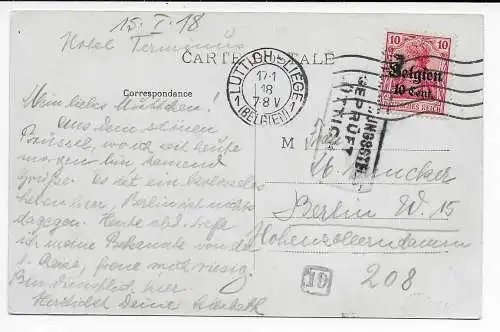 15. I. 18
Hotel Terminus
CARTE POSTALE
Correspondance
LÜTTICH-LIÈGE
17.1
18
7-8 V
(BELGIEN)
10 10
Belgien
10 Cent.
DEUTSCHES REICH
GEPRÜFT
LÜTTICH
Mein liebes
Aus dem schönen
Brüssel, wo ich seit heute
morgen bin
Grüße. Es ist ein kolossales
Leben hier, Berlin ist nichts
dagegen. Heute abd. treffe
ich meine Bekannte von der
Reise, freue mich riesig.
Bin hier.
Herzlichst Deine
Berlin W. 15
Hohenzollerndamm
208
10